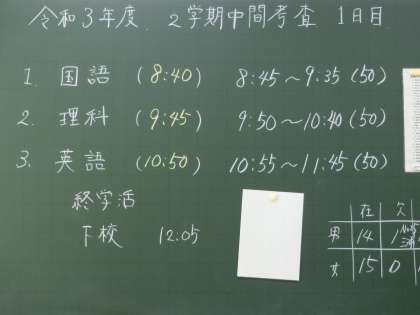 令和3年度 2学期中間考査 1日目
1. 国語 (8:40) 8:45～9:35 (50)
2. 理科 (9:45) 9:50～10:40 (50)
3. 英語 (10:50) 10:55～11:45 (50)
終学活
下校 12:05
在 欠
男 14 1
女 15 0